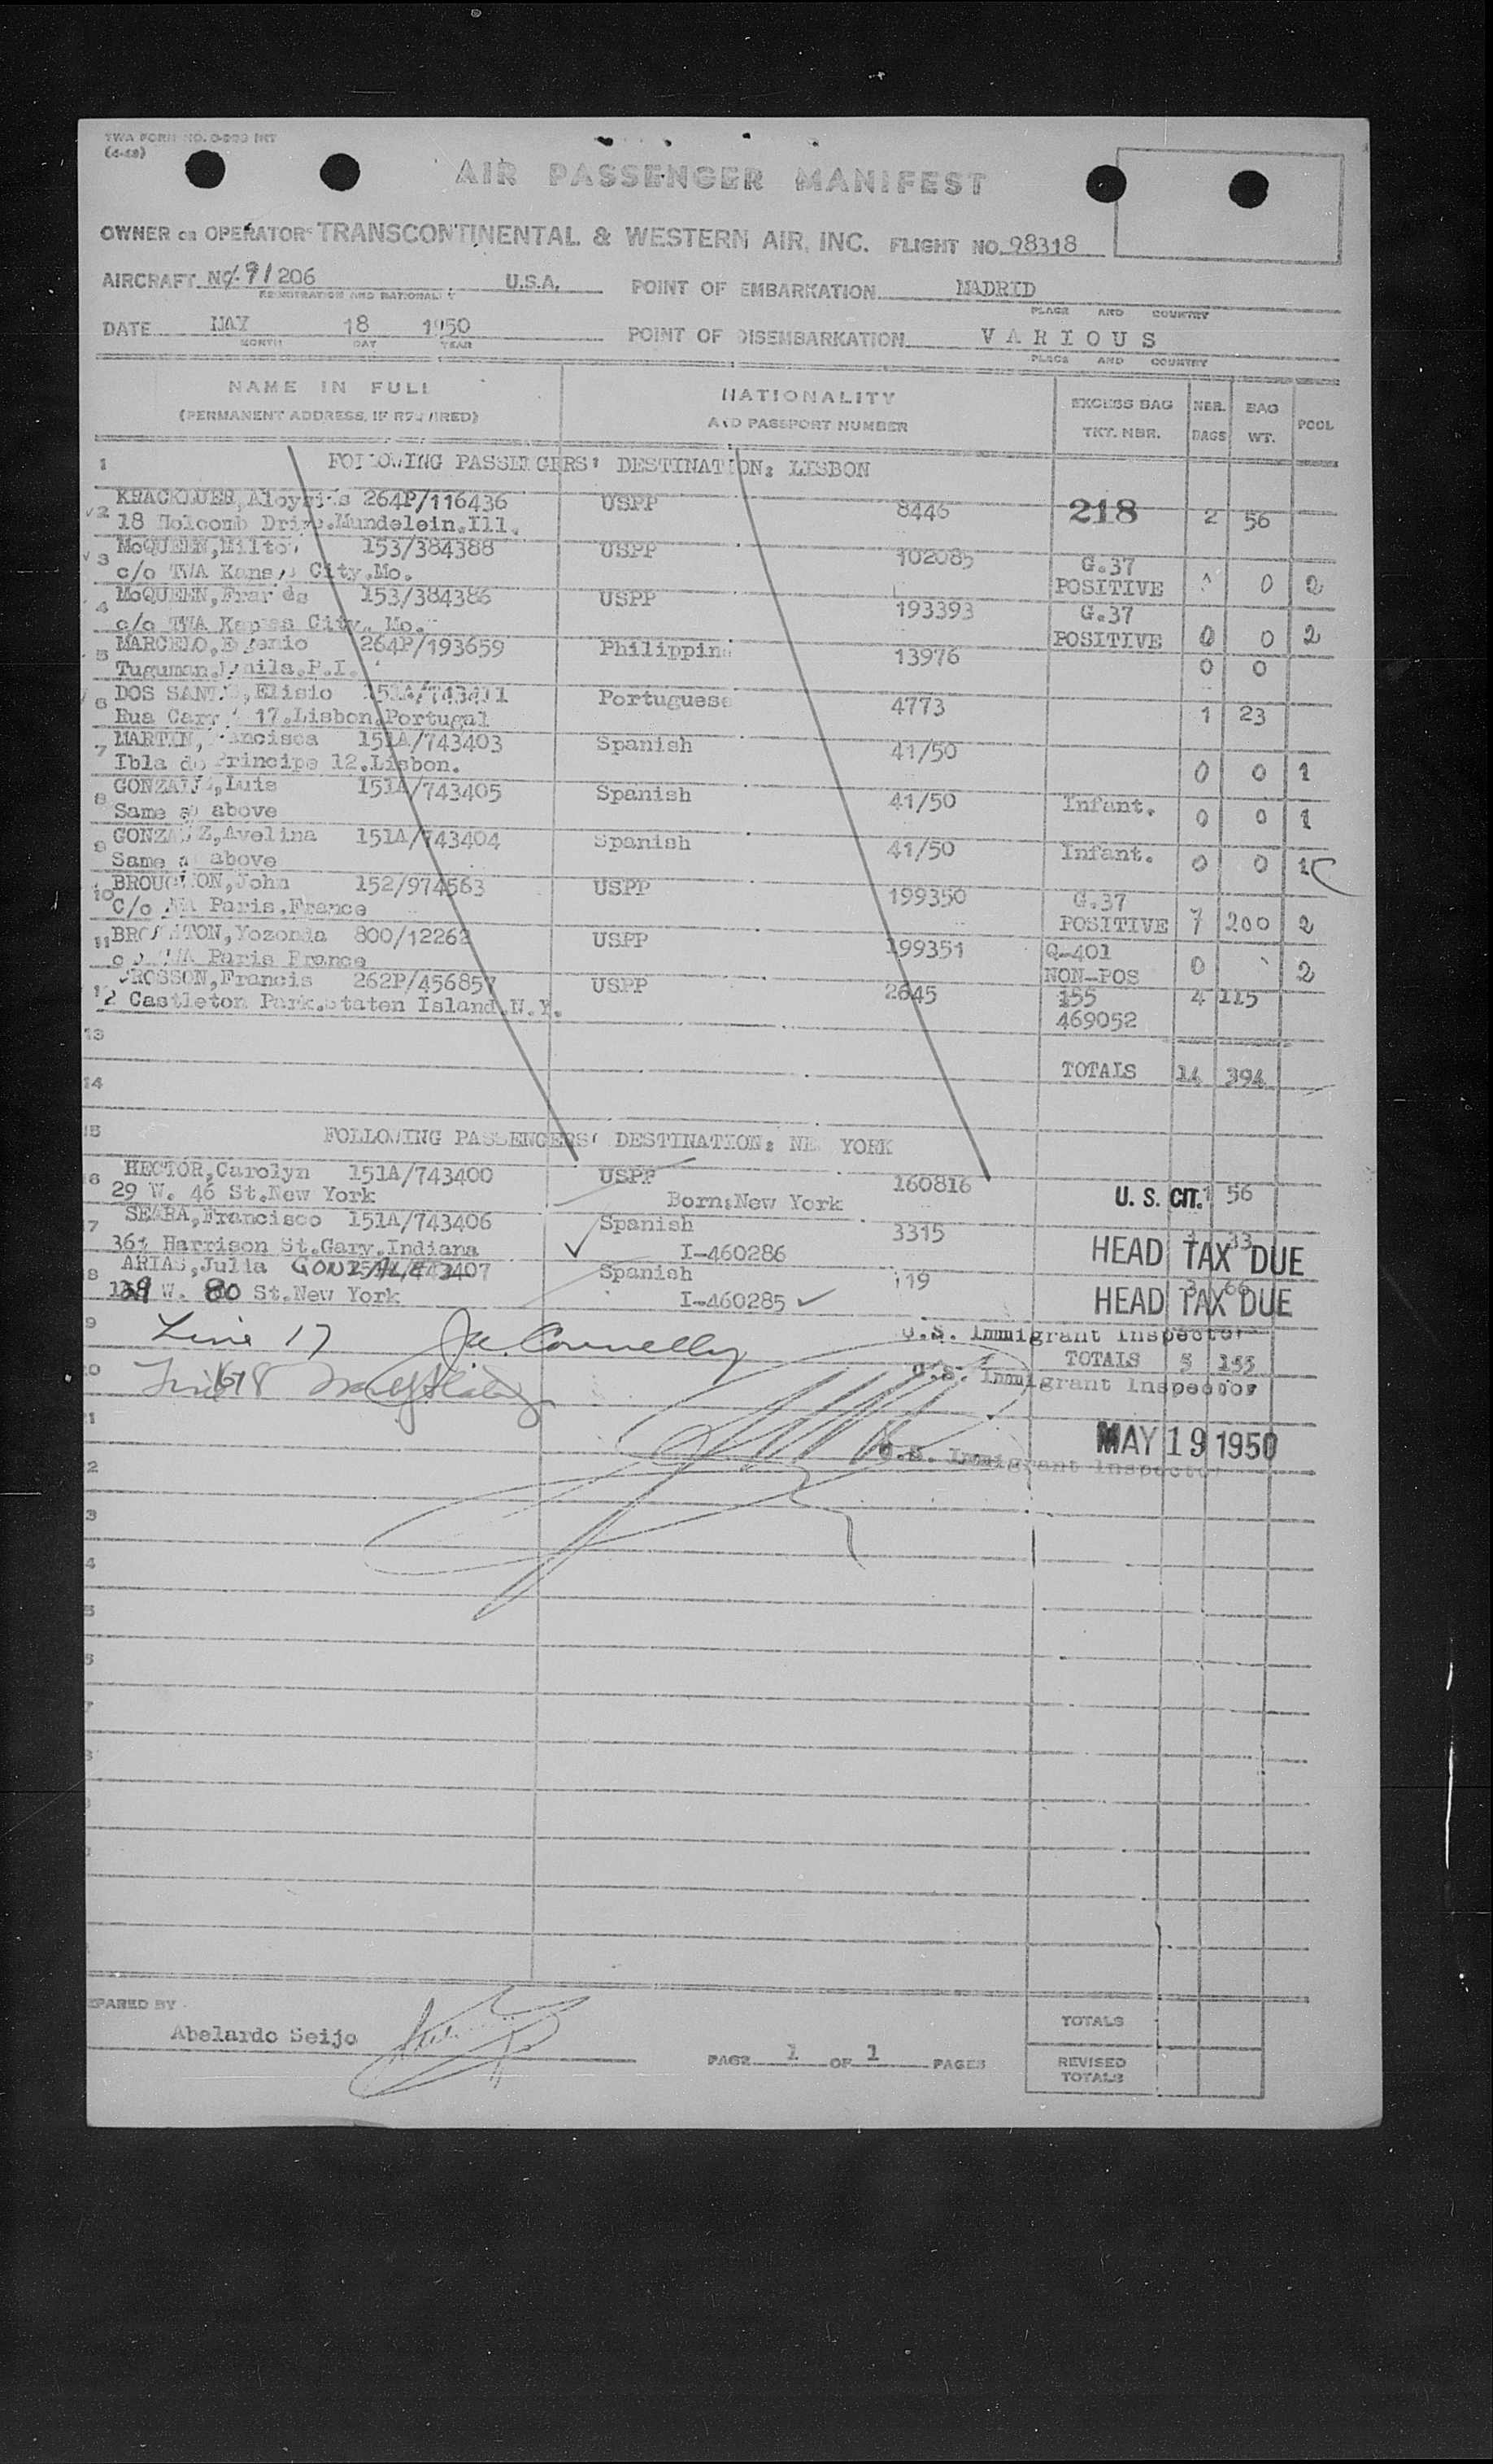 TWA FORM NO. O-293 INT
(4-48)
AIR PASSENGER MANIFEST
OWNER OR OPERATOR TRANSCONTINENTAL & WESTERN AIR, INC. FLIGHT NO. 98318
AIRCRAFT NO. 91206 U.S.A. POINT OF EMBARKATION MADRID
REGISTRATION AND NATIONALITY PLACE AND COUNTRY
DATE MAY 18 1950 POINT OF DISEMBARKATION VARIOUS
MONTH DAY YEAR PLACE AND COUNTRY
NAME IN FULL NATIONALITY EXCESS BAG NBR. BAG POOL
(PERMANENT ADDRESS, IF REQUIRED) AND PASSPORT NUMBER TKT. NBR. BAGS WT.
1 FOLLOWING PASSENGERS' DESTINATION: LISBON
2 Aloysius 264P/116436 USPP 8446 218 2 56
18 Holcomb Drive.Mundelein.Ill.
3 McQUEEN,Milton 153/384388 USPP 102085 G.37
c/o TWA Kansas City.Mo. POSITIVE 0 2
4 McQUEEN, 153/384386 USPP 193393 G.37
c/o TWA Kansas City. Mo. POSITIVE 0 0 2
5 MARCELO, 264P/193659 Philippine 13976 0 0
P.I.
6 DOS SANTOS,Elisio 151A/743411 Portuguese 4773 1 23
Rua 17.Lisbon,Portugal
7 MARTIN,Francisca 151A/743403 Spanish 41/50 0 0 1
Principe 12.Lisbon.
8 GONZALEZ,Luis 151A/743405 Spanish 41/50 Infant. 0 0 1
Same as above
9 GONZALEZ,Avelina 151A/743404 Spanish 41/50 Infant. 0 0 1
Same as above
10 BROUGHTON,John 152/974563 USPP 199350 G.37
C/o TWA Paris.France POSITIVE 7 200 2
11 BROUGHTON,Yozonda 800/12262 USPP 199351 Q-401 0
c/o TWA Paris France NON-POS 2
12 CROSSON,Francis 262P/456857 USPP 2645 155 4 115
2 Castleton Park.Staten Island.N.Y. 469052
13
TOTALS 14 394
14
15 FOLLOWING PASSENGERS' DESTINATION: NEW YORK
6 HECTOR,Carolyn 151A/743400 USPP 160816
29 W. 46 St.New York Born:New York U. S. CIT. 1 56
7 SEARA,Francisco 151A/743406 Spanish 3315
Harrison St.Gary.Indiana I-460286 HEAD TAX DUE
8 ARIAS,Julia GONZALEZ Spanish 119
139 W. 80 St.New York I-460285 HEAD TAX DUE
9 Line 17 U.S. Immigrant Inspector
TOTALS 5 155
0 U.S. Immigrant Inspector
1
MAY 19 1950
2 U.S. Immigrant Inspector
3
4
5
PREPARED BY
Abelardo Seijo
PAGE 1 OF 1 PAGES
TOTALS
REVISED
TOTALS